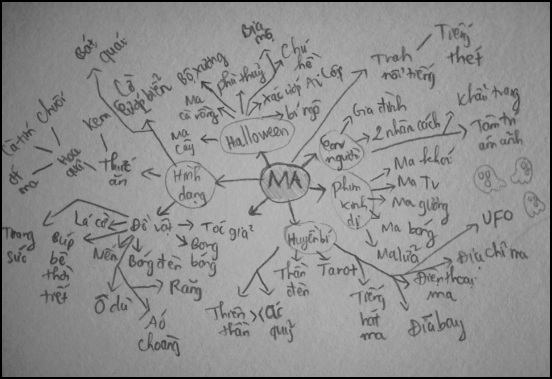 Bát quái
Cờ cướp biển
Bộ xương
Phù thuỷ
Bia mộ
Chú hề
Xác ướp Ai Cập
Ma cà rồng
bí ngô
Ma cây
Halloween
Tranh nổi tiếng
Tiếng thét
Gia đình
2 nhân cách
Khẩu trang
Tâm trí ám ảnh
con người
MA
Hình dạng
Thức ăn
Kem
Hoa quả
Chuối
Cà tím
ớt ma
phim kinh dị
Ma khói
Ma Tv
Ma gương
Ma bóng
Ma lửa
Đồ vật
Lá cờ
Trang sức
Búp bê thời tiết
Nến
Ô dù
Bóng đèn
Áo choàng
Răng
Bong bóng
Tóc giả
Huyền bí
Thần đèn
Tarot
Thiên thần >< ác quỷ
Tiếng hát ma
Đĩa bay
Điện thoại ma
Địa chỉ ma
UFO